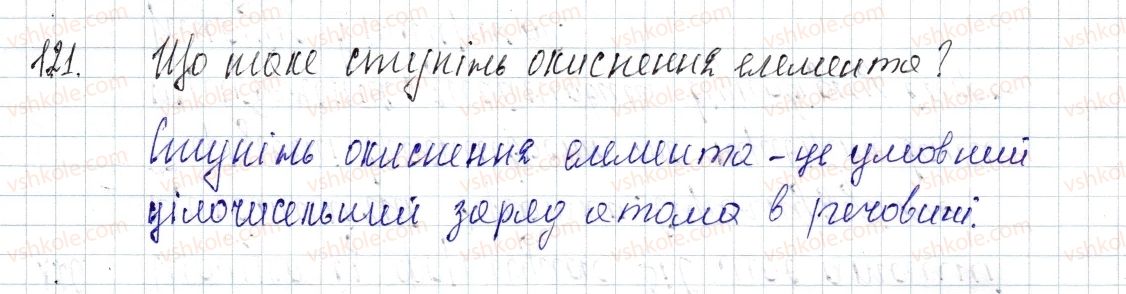 121. Що таке ступінь окиснення елемента?
Ступінь окиснення елемента – це умовний
цілочисельний заряд атома в речовині.